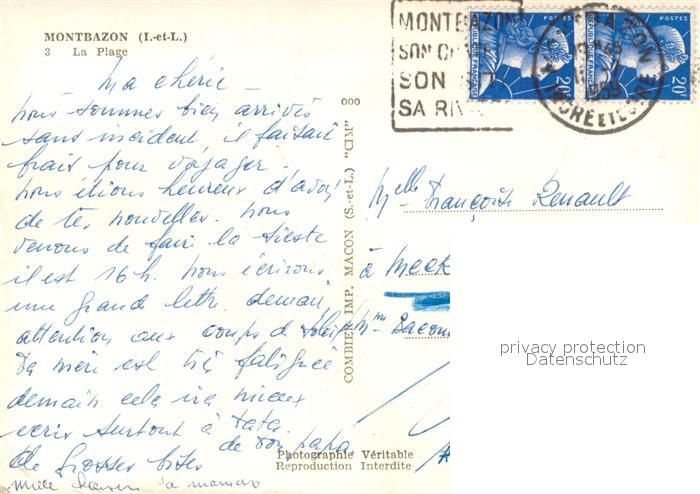 MONTBAZON (I.-et-L.)
3 La Plage
MONTBAZON
SON
SON
SA
POSTES
POSTES
REPUBLIQUE FRANÇAISE
REPUBLIQUE FRANÇAISE
20F
20F
1959
INDRE ET LOIRE
Ma chérie -
nous sommes bien arrivés
sans incident, il faisait
frais pour voyager -
nous étions heureux d'avoir
de tes nouvelles. nous
venons de faire la sieste
il est 16h. nous écrirons
une grande lettre demain,
attention aux coups de soleil
Ta mère est très fatiguée
demain cela ira mieux
écris surtout à tata.
de ton papa
de grosses bises
mille baisers ta maman
000
COMBIER IMP. MACON (S.-et-L.) "CIM"
Melle Françoise Renault
à
Mme
Photographie Véritable
Reproduction Interdite
privacy protection
Datenschutz